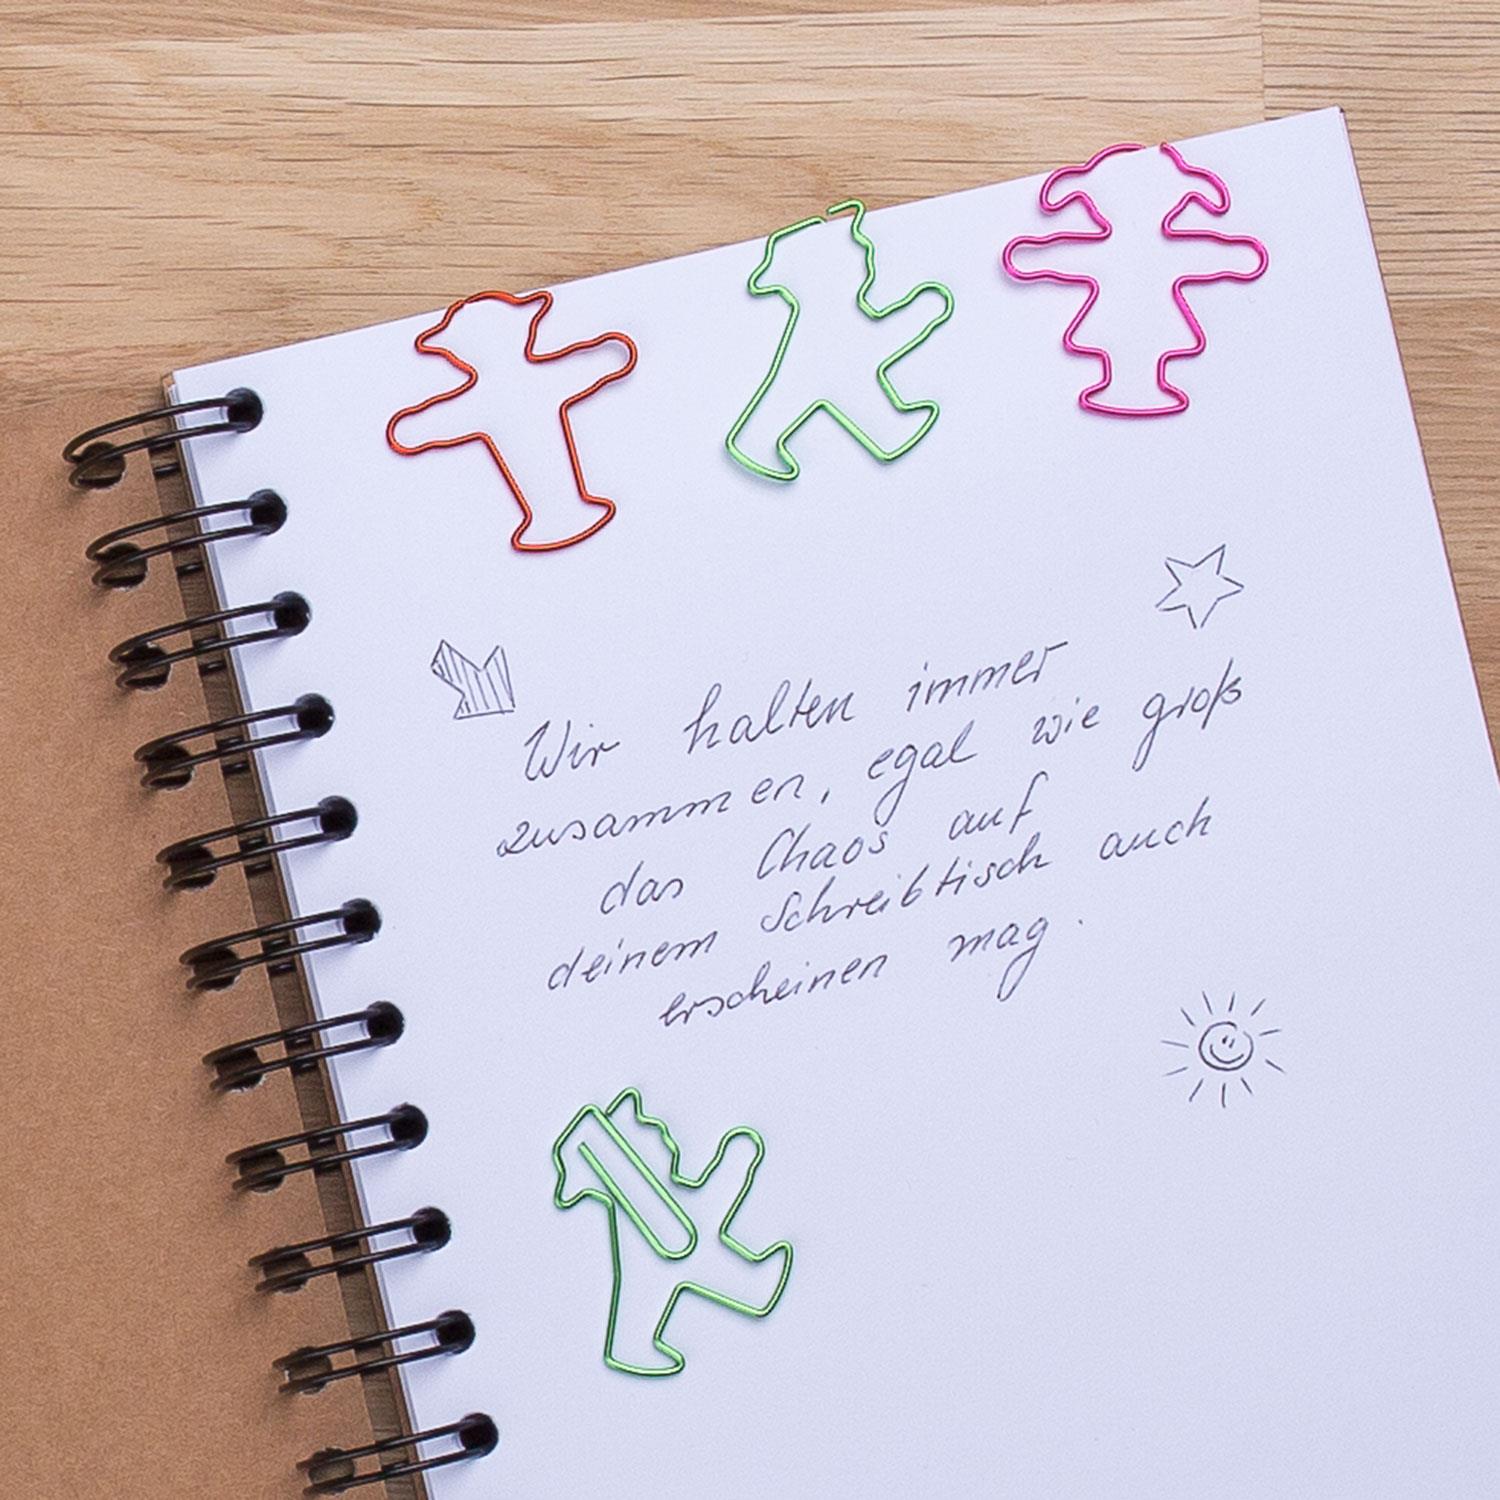 Wir halten immer
zusammen, egal wie groß
das Chaos auf
deinem Schreibtisch auch
erscheinen mag.